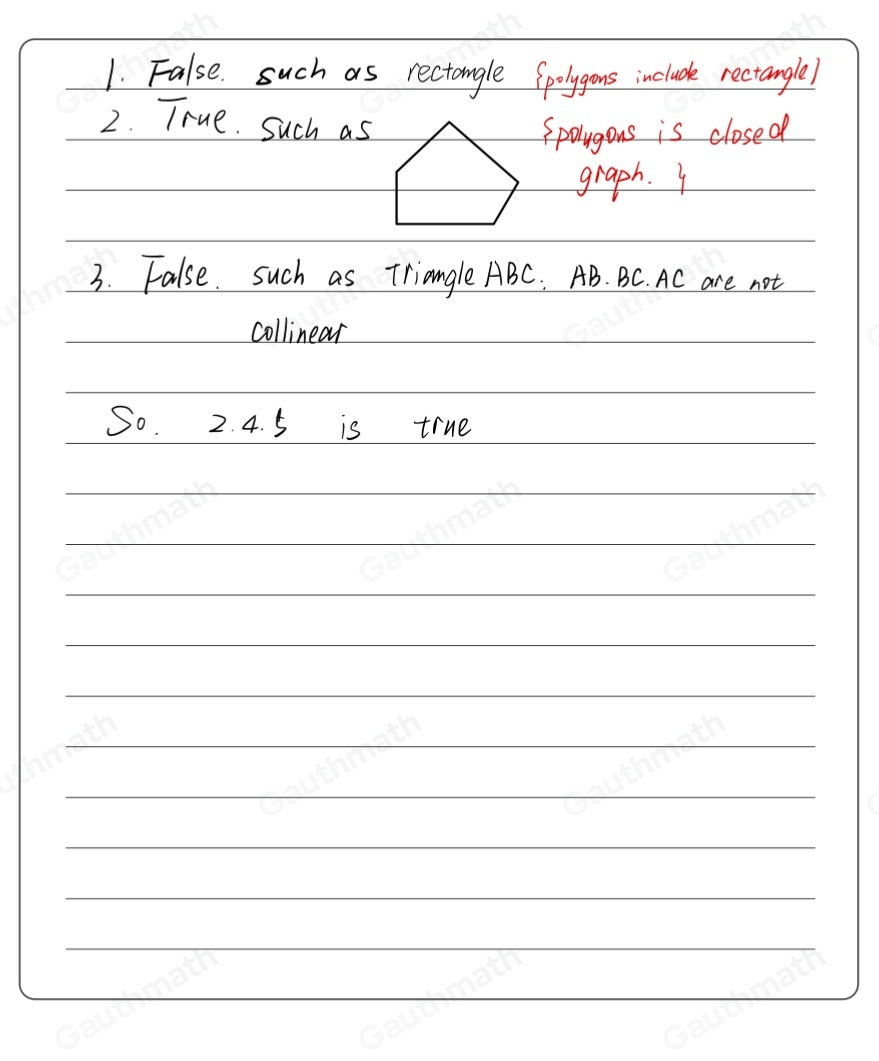 1. False. such as rectangle {polygons include rectangle}
2. True. such as {polygons is closed
graph. }
3. False. such as Triangle ABC. AB. BC. AC are not
collinear
So. 2.4.5 is true
Gauthmath